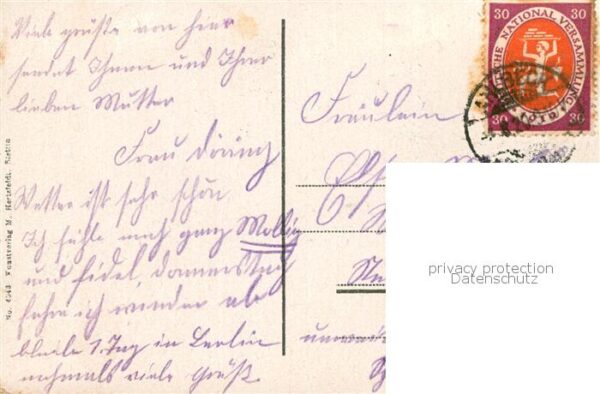 Viele grüße von hier
sendet Ihnen und Ihrer
lieben Mutter
Frau Döring
Wetter ist sehr schön
Ich fühle mich ganz Mollig
und fidel, donnerstag
fahre ich wieder ab
bleibe 1 Tag in Berlin
nochmals viele Grüße
Fräulein
No. 4943 Kunstverlag M. Herzfeldt, Stettin
30 30
NATIONAL VERSAMMLUNG
1919
30 30
privacy protection
Datenschutz